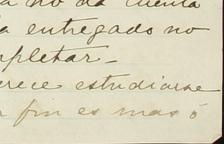 a no da cuenta
a entregado no
mpletar-
rece estudiarse
fin es mas ó